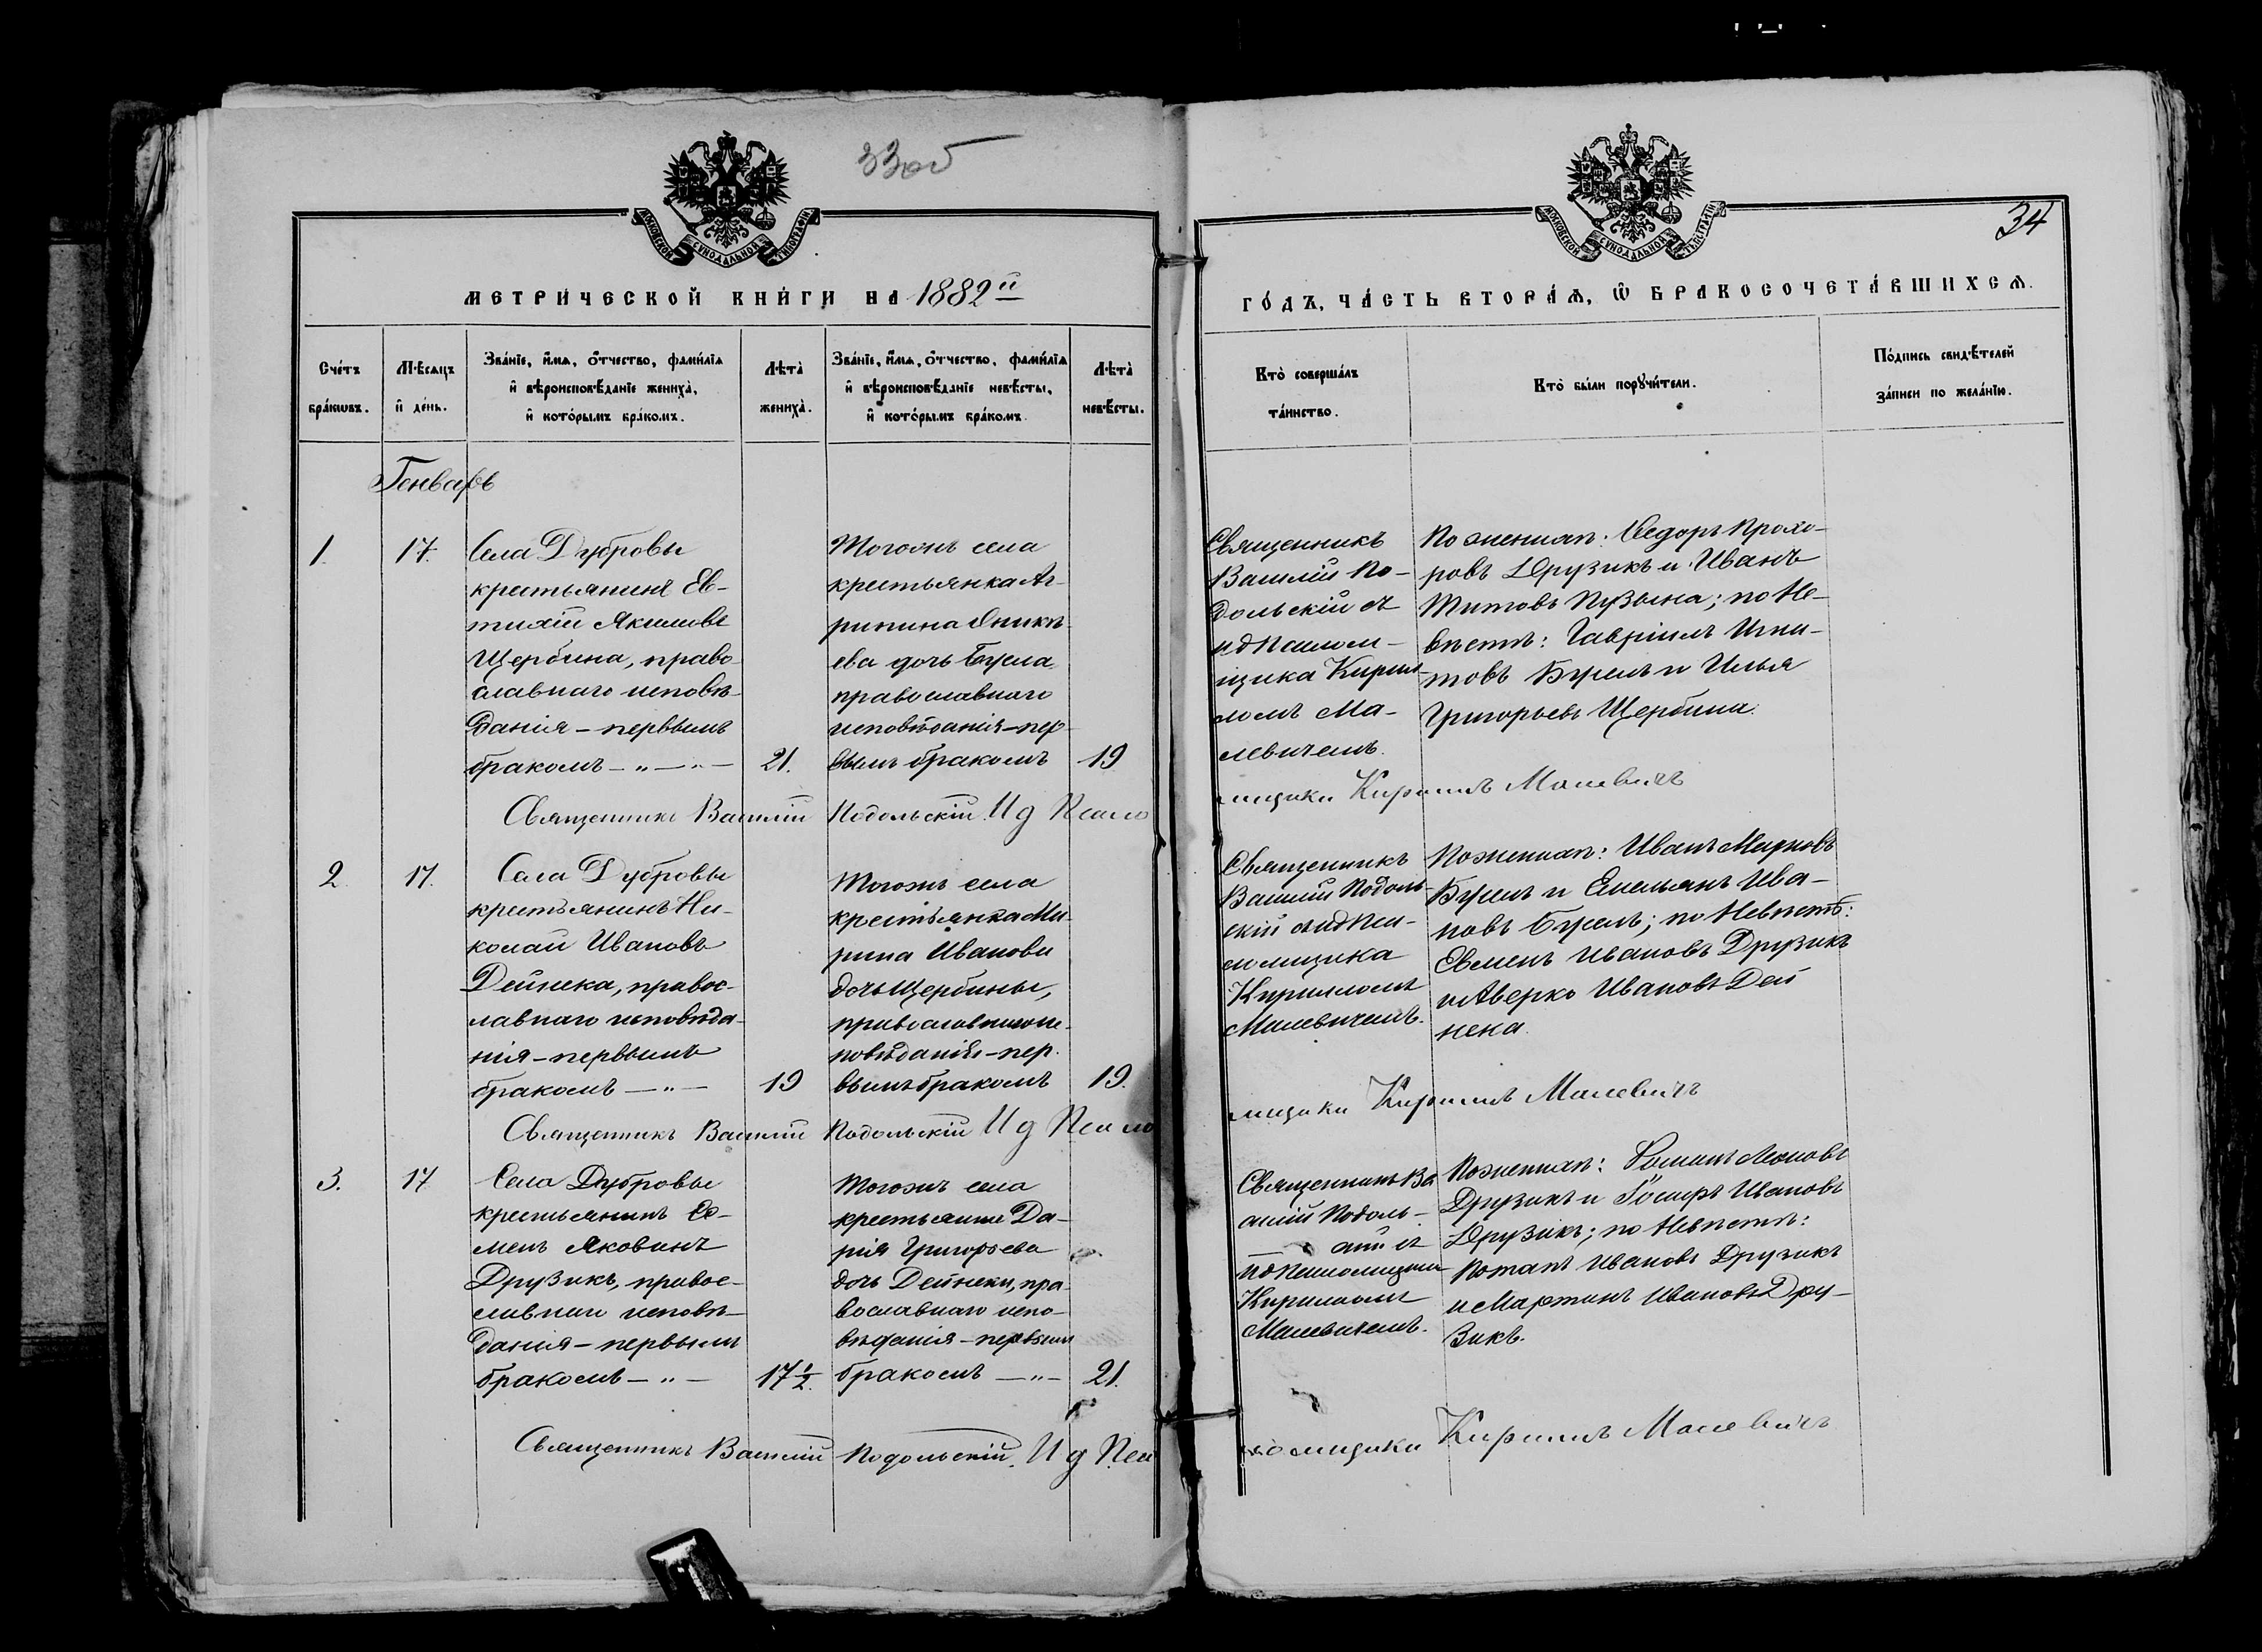 33об
34
МОСКОВСКОЙ СУНОДАЛЬНОЙ ТИПОГРАФІИ
МОСКОВСКОЙ СУНОДАЛЬНОЙ ТИПОГРАФІИ
МЕТРИ́ЧЕСКОЙ КНИ́ГИ НА 1882й
ГО́ДЪ, ЧА́СТЬ ВТОРА́Ѧ, Ѿ БРАКОСОЧЕТА́ВШИХСѦ.
Сче́тъ бра́кѡвъ.
Мѣ́сѧцъ и҆ де́нь.
Зва́нїе, и҆́мѧ, ѻ҆́тчество, фами́лїѧ
и҆ вѣроисповѣ́данїе жениха̀,
и҆ кото́рымъ бра́комъ.
Лѣта̀ жениха̀.
Зва́нїе, и҆́мѧ, ѻ҆́тчество, фами́лїѧ
и҆ вѣроисповѣ́данїе невѣ́сты,
и҆ кото́рымъ бра́комъ.
Лѣта̀ невѣ́сты.
Кто̀ соверша́лъ та́инство.
Кто̀ бы́ли порꙋчи́тели.
По́дпись свидѣ́телей за́писи по жела́нїю.
Генварь
1.
17.
Села Дубровы
крестьянинъ Ев-
тихій Якимовъ
Щербина, право-
славнаго исповѣ-
данія – первымъ
бракомъ – „ – „ –
21.
Тогожъ села
крестьянка Аг-
рипина Оникѣ-
ева дочь Бусла
православнаго
исповѣданія – пер-
вымъ бракомъ
19
Священникъ
Василій По-
дольскій съ
ид псалом-
щика Кирил-
ломъ Ма-
левичемъ.
По женихѣ: Ѳедоръ Прохо-
ровъ Друзикъ и Иванъ
Титовъ Пузына; по Не-
вѣстѣ: Гавріилъ
товъ и Илья
Григорьевъ Щербина.
Священникъ Василій Подольскій. И д Псало
мщика Кириллъ Малевичъ
2.
17.
Села Дубровы
крестьянинъ Ни-
колай Ивановъ
Дейнека, правос-
лавнаго исповѣда-
нія – первымъ
бракомъ – „ –
19
Тогожъ села
крестьянка Ма-
рина Иванова
дочь Щербины,
православнаго ис-
повѣданія – пер-
вымъ бракомъ
19.
Священникъ
Василій Подоль-
скій съ ид пса-
ломщика
Кирилломъ
Малевичемъ.
По женихѣ: Иванъ Марковъ
и Емельянъ Ива-
новъ; по Невѣстѣ:
Евменъ Ивановъ Друзикъ
и Аверко Ивановъ Дей
нека.
Священникъ Василій Подольскій И д Псало
мщика Кириллъ Малевичъ
3.
17
Села Дубровы
крестьянинъ
менъ Яковинъ
Друзикъ, правос-
лавнаго исповѣ-
данія – первымъ
бракомъ – „ –
17½.
Тогожъ села
крестьянка Да-
рія Григорьева
дочь Дейнеки, пра-
вославнаго испо-
вѣданія – первымъ
бракомъ – „ –
21.
Священникъ Ва
силій Подоль-
скій съ
ид псаломщика
Кирилломъ
Малевичемъ.
По женихѣ: Романъ
Друзикъ и Ивановъ
Друзікъ; по Невѣстѣ:
Потапъ Ивановъ Друзикъ
и Мартинъ Ивановъ Дру-
зикъ.
Священникъ Василій Подольскій. И д Пса
ломщика Кириллъ Малевичъ